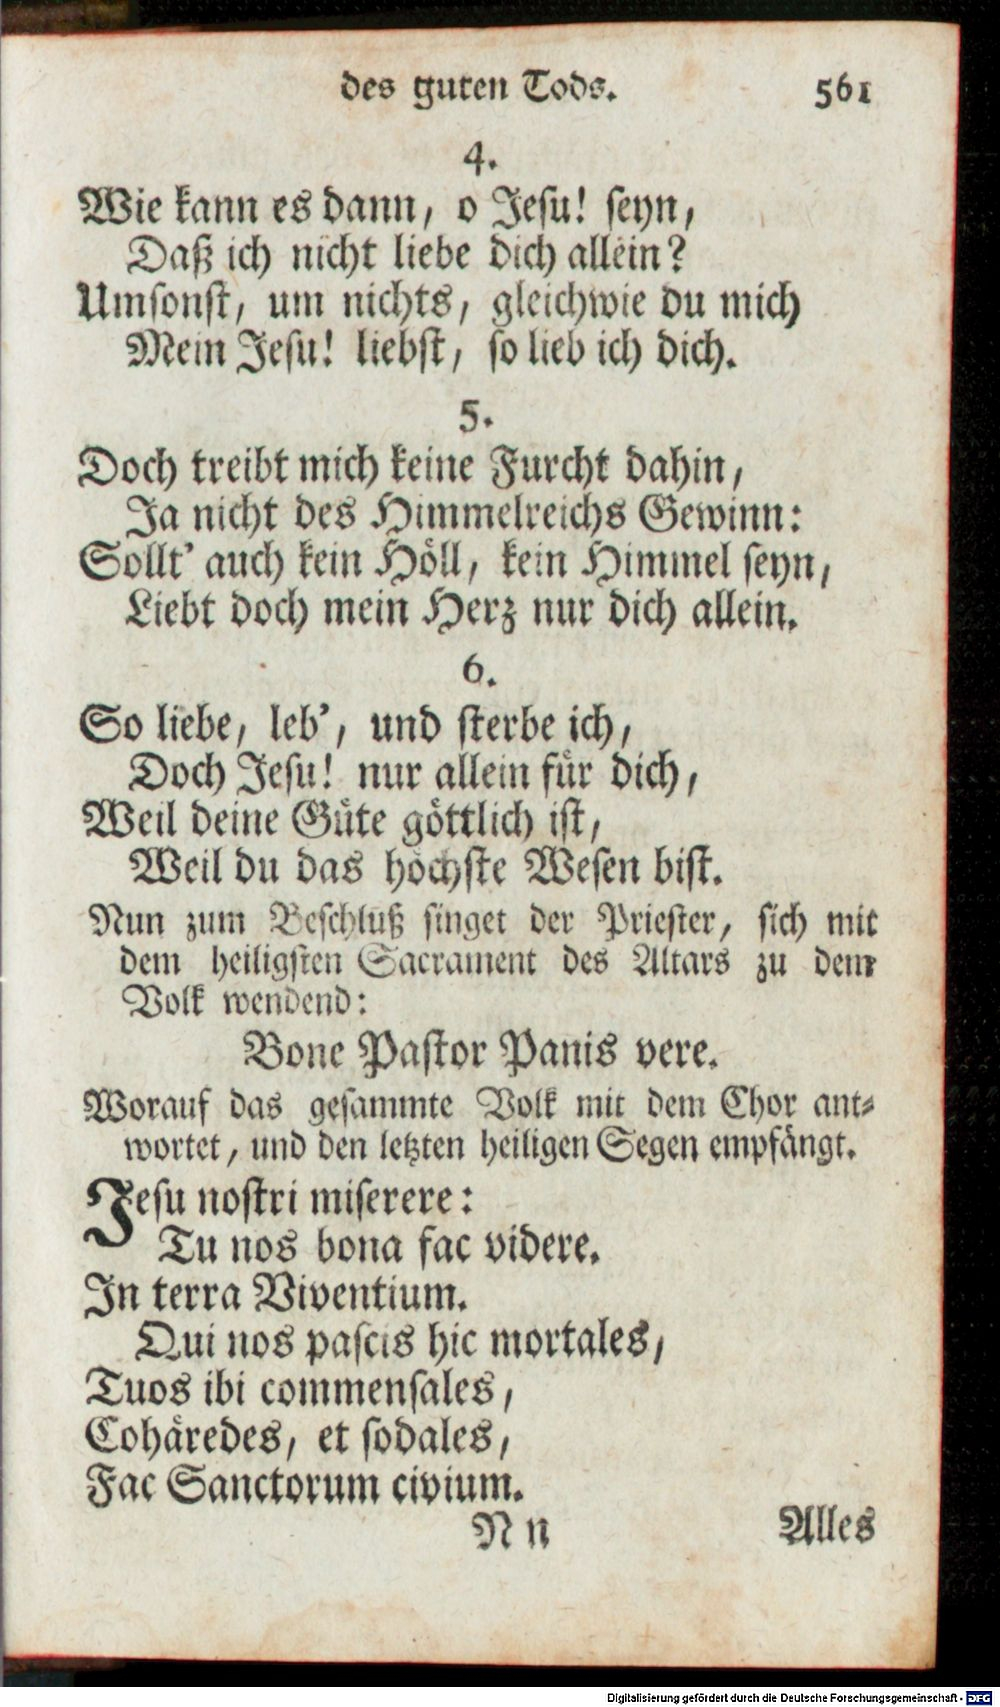 des guten Tods. 561
4.
Wie kann es dann, o Jesu! seyn,
Daß ich nicht liebe dich allein?
Umsonst, um nichts, gleichwie du mich
Mein Jesu! liebst, so lieb ich dich.
5.
Doch treibt mich keine Furcht dahin,
Ja nicht des Himmelreichs Gewinn:
Sollt' auch kein Höll, kein Himmel seyn,
Liebt doch mein Herz nur dich allein.
6.
So liebe, leb', und sterbe ich,
Doch Jesu! nur allein für dich,
Weil deine Güte göttlich ist,
Weil du das höchste Wesen bist.
Nun zum Beschluß singet der Priester, sich mit
dem heiligsten Sacrament des Altars zu dem
Volk wendend:
Bone Pastor Panis vere.
Worauf das gesammte Volk mit dem Chor ant-
wortet, und den letzten heiligen Segen empfängt.
Jesu nostri miserere:
Tu nos bona fac videre.
In terra Viventium.
Qui nos pascis hic mortales,
Tuos ibi commensales,
Cohäredes, et sodales,
Fac Sanctorum civium.
N n Alles
Digitalisierung gefördert durch die Deutsche Forschungsgemeinschaft - DFG